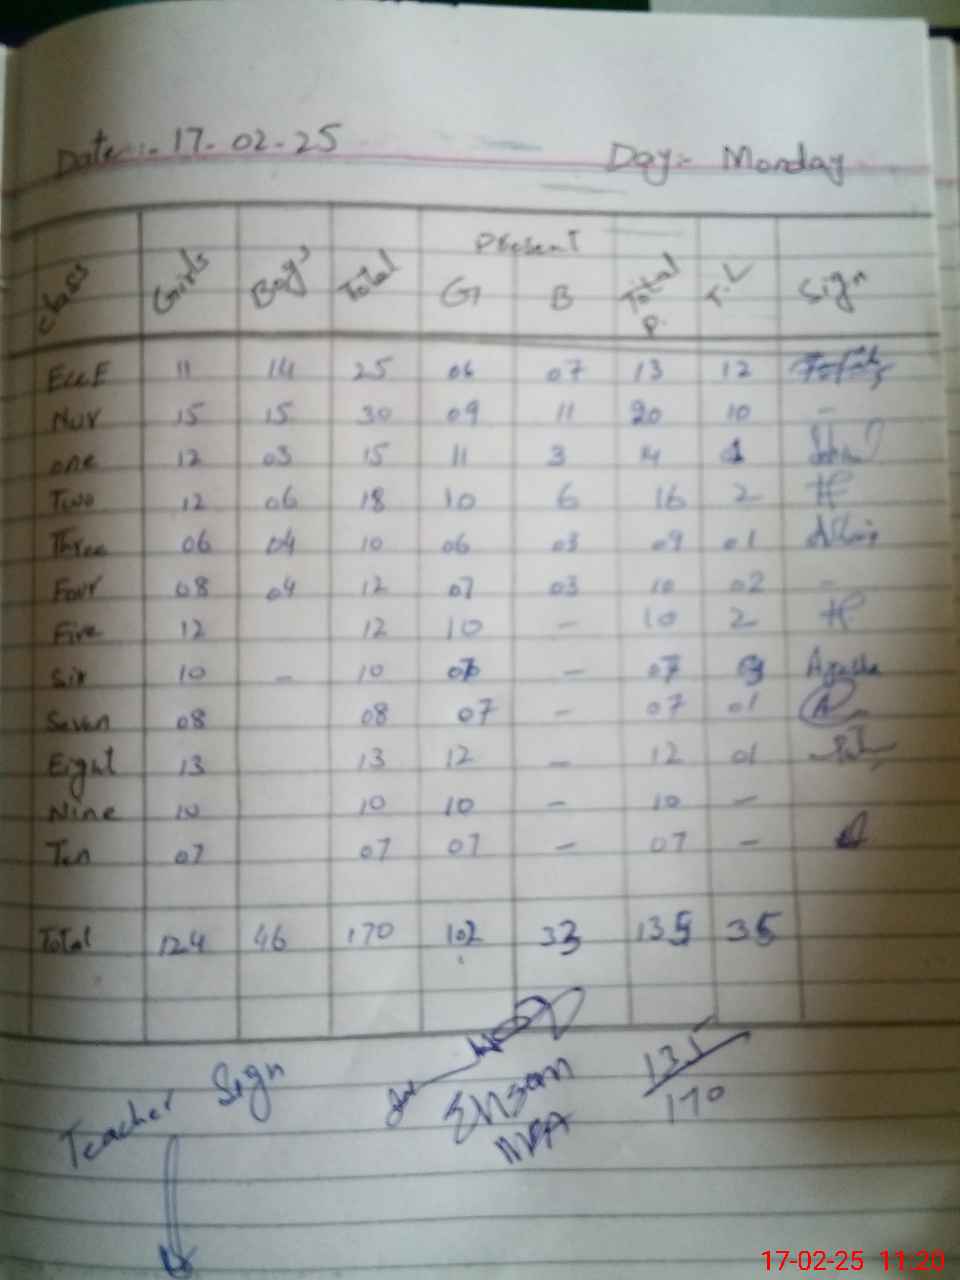 Date:- 17-02-25 Day:- Monday
Present
Class Girls Boys Total G B Total P. T.L Sign
EccE 11 14 25 06 07 13 12
Nur 15 15 30 09 11 20 10 -
one 12 03 15 11 3 14 1
Two 12 06 18 10 6 16 2
Three 06 04 10 06 03 09 01
Four 08 04 12 07 03 10 02 -
Five 12 12 10 - 10 2
Six 10 - 10 07 - 07 3
Seven 08 08 07 - 07 01
Eight 13 13 12 - 12 01
Nine 10 10 10 - 10 -
Ten 07 07 07 - 07 -
Total 124 46 170 102 33 135 35
Teacher Sign
135
170
17-02-25 11:20